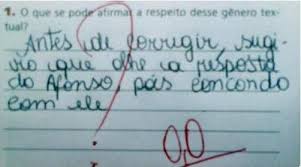 1. O que se pode afirmar a respeito desse gênero tex-
tual?
Antes de corrigir, sugi-
ro que olhe a resposta
do Afonso, pois concordo
com ele.
?
0,0